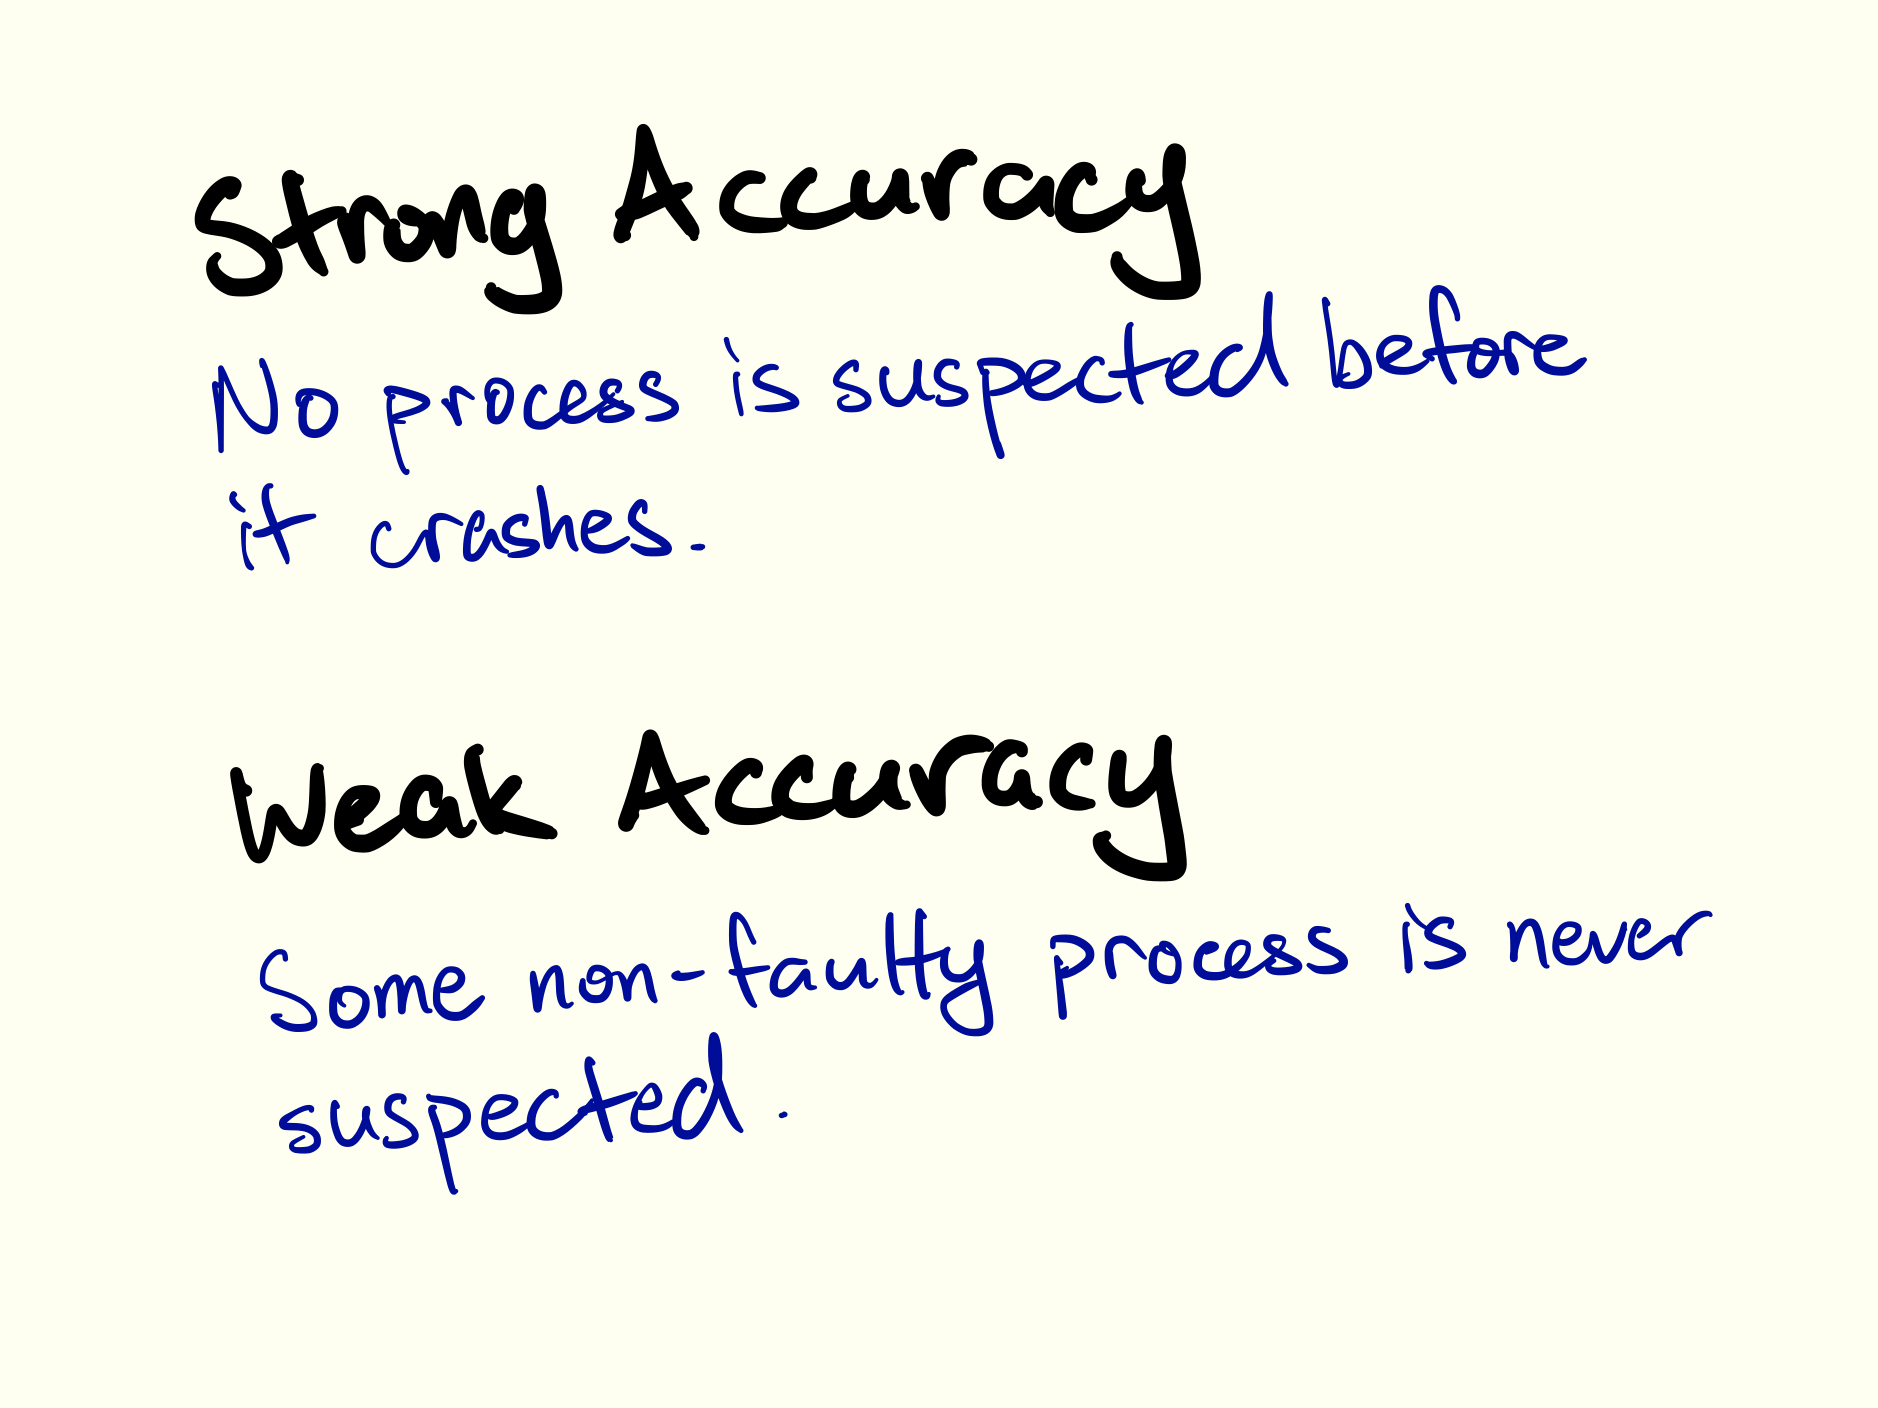 Strong Accuracy
No process is suspected before
it crashes.
Weak Accuracy
Some non-faulty process is never
suspected.